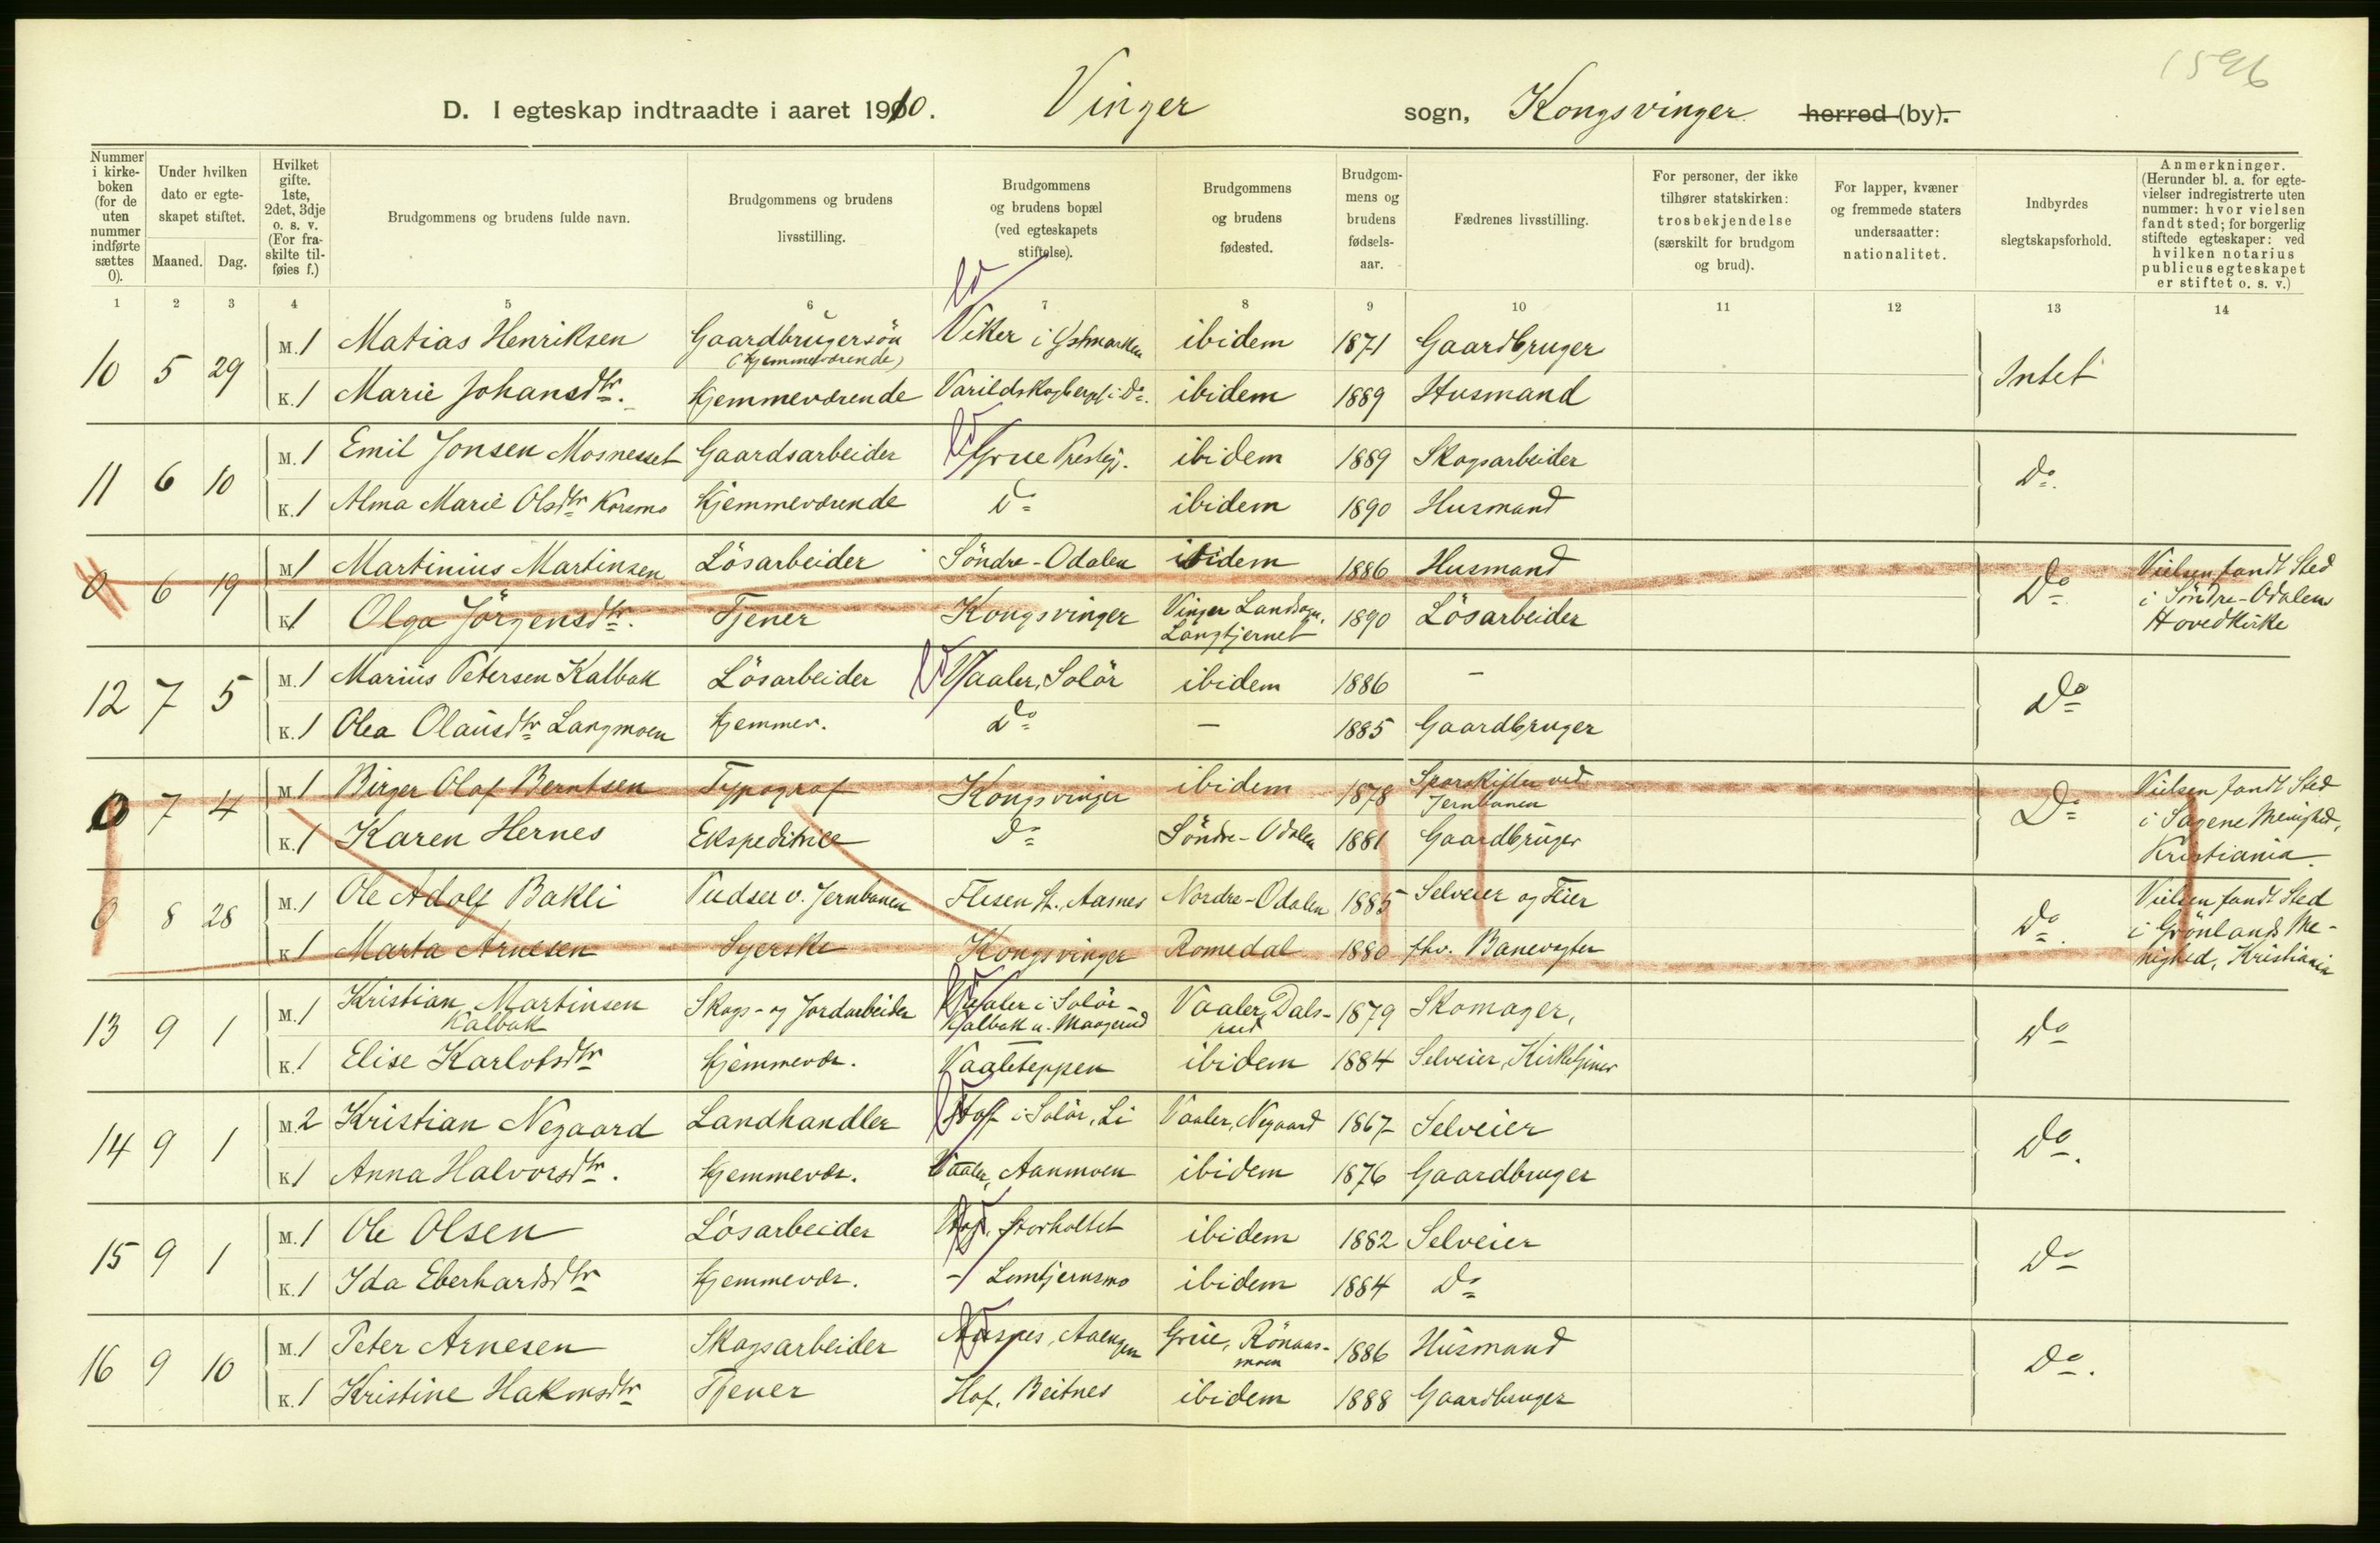 1596
D. I egteskap indtraadte i aaret 1910. Vinger sogn, Kongsvinger herred (by).
Nummer i kirkeboken (for de uten nummer indførte sættes 0). Under hvilken dato er egteskapet stiftet. Maaned. Dag. Hvilket gifte. 1ste, 2det, 3dje o. s. v. (For fraskilte tilføies f.) Brudgommens og brudens fulde navn. Brudgommens og brudens livsstilling. Brudgommens og brudens bopæl (ved egteskapets stiftelse). Brudgommens og brudens fødested. Brudgommens og brudens fødselsaar. Fædrenes livsstilling. For personer, der ikke tilhører statskirken: trosbekjendelse (særskilt for brudgom og brud). For lapper, kvæner og fremmede staters undersaatter: nationalitet. Indbyrdes slegtskapsforhold. Anmerkninger. (Herunder bl. a. for egtevielser indregistrerte uten nummer: hvor vielsen fandt sted; for borgerlig stiftede egteskaper: ved hvilken notarius publicus egteskapet er stiftet o. s. v.)
1 2 3 4 5 6 7 8 9 10 11 12 13 14
10 5 29 M. 1 Matias Henriksen Gaardbrugersön (hjemmeværende) Viker i Østmarken ibidem 1871 Gaardbruger Intet
K. 1 Marie Johansdtr. Hjemmeværende Varildskogberget i Do. ibidem 1889 Husmand
11 6 10 M. 1 Emil Jonsen Mosnesset Gaardsarbeider Grue Prestgj. ibidem 1889 Skogsarbeider Do.
K. 1 Alma Marie Olsdtr Korsmo Hjemmeværende Do ibidem 1890 Husmand
0 6 19 M 1 Martinius Martinsen Lösarbeider Söndre-Odalen ibidem 1886 Husmand Do Vielsen fandt Sted i Söndre-Odalens Hovedkirke
K 1 Olga Jörgensdtr. Tjener Kongsvinger Vinger Landsogn, Langtjernet 1890 Lösarbeider
12 7 5 M. 1 Marius Petersen Kalbak Lösarbeider Vaaler, Solör ibidem 1886 - Do
K. 1 Olea Olausdtr Langmoen Hjemmev. Do - 1885 Gaardbruger
0 7 4 M 1 Birger Olaf Berntsen Typograf Kongsvinger ibidem 1878 Sporskifter ved Jernbanen Do Vielsen fandt Sted i Sagene Menighed, Kristiania.
K. 1 Karen Hernes Ekspeditrice Do Söndre-Odalen 1881 Gaardbruger
0 8 28 M. 1 Ole Adolf Bakli Pudser v. Jernbanen Flisen St., Aasnes Nordre-Odalen 1885 Selveier og Feier Do. Vielsen fandt Sted i Grönlands Menighed, Kristiania
K 1 Marta Arnesen Syerske Kongsvinger Romedal 1880 fhv. Banevogter
13 9 1 M. 1 Kristian Martinsen Kalbak Skogs- og Jordarbeider Vaaler i Solör - Kalbak u. Maagerud Vaaler, Dalsrud 1879 Skomager, Do
K. 1 Elise Karlotsdtr Hjemmevær. Vaaleteppen ibidem 1884 Selveier, Kirketjener
14 9 1 M 2 Kristian Negaard Landhandler Hof i Solör, Li Vaaler, Negaard 1867 Selveier Do.
K 1 Anna Halvorsdtr. Hjemmevær. Vaaler, Aanmoen ibidem 1876 Gaardbruger
15 9 1 M. 1 Ole Olsen Lösarbeider Hof, Storholtet ibidem 1882 Selveier Do
K. 1 Ida Eberhardsdtr Hjemmevær. - Lomtjernsmo ibidem 1884 Do
16 9 10 M. 1 Peter Arnesen Skogsarbeider Aasnes, Aaengen Grue, Rönaasmoen 1886 Husmand Do.
K. 1 Kristine Hakonsdtr Tjener Hof, Beitnes ibidem 1888 Gaardbruger